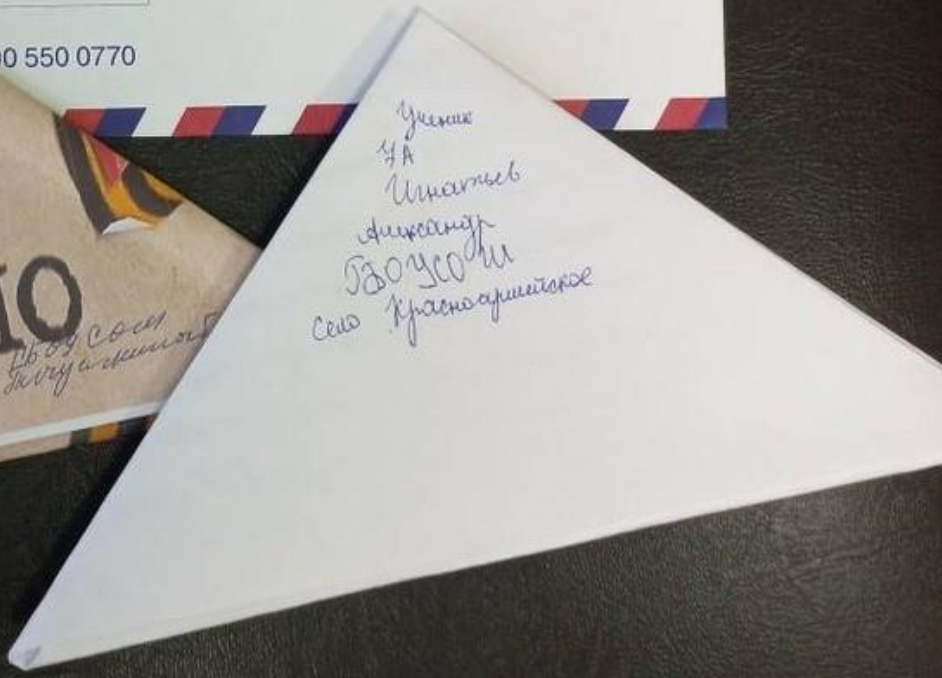 00 550 0770
Ученик
7А
Игнатьев
Александр
ГБОУСОШ
село Красноармейское
Ю
ГБОУ СОШ